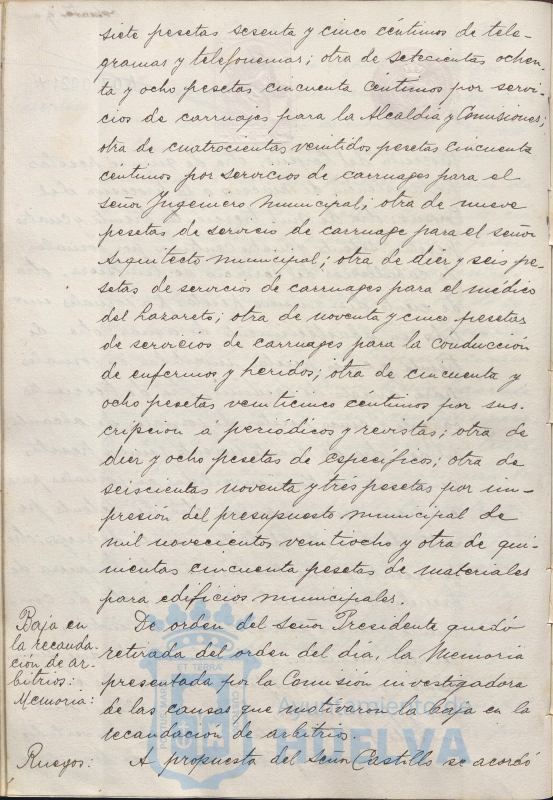 siete pesetas sesenta y cinco céntimos de tele-
gramas y telefonemas; otra de setecientas ochen-
ta y ocho pesetas cincuenta céntimos por servi-
cios de carruajes para la Alcaldía y Comisiones;
otra de cuatrocientas veintidos pesetas cincuenta
centimos por servicios de carruages para el
señor Ingeniero Municipal; otra de nueve
pesetas de servicio de carruage para el señor
Arquitecto municipal; otra de diez y seis pe-
setas de servicios de carruages para el médico
del Lazareto; otra de noventa y cinco pesetas
de servicios de carruages para la conducción
de enfermos y heridos; otra de cincuenta y
ocho pesetas veinticinco céntimos por sus-
cripcion á periódicos y revistas; otra de
diez y ocho pesetas de específicos; otra de
seiscientas noventa y tres pesetas por im-
presión del presupuesto municipal de
mil novecientos veintiocho y otra de qui-
nientas cincuenta pesetas de materiales
para edificios municipales.
Baja en
la recauda-
ción de ar-
bitrios.
Memoria:
De orden del señor Presidente quedó
retirada del orden del día, la Memoria
presentada por la Comisión investigadora
de las causas que motivaron la baja en la
recaudación de arbitrios.
Ruegos:
A propuesta del señor Castillo se acordó
PORTUS MARIS
ET TERRÆ
CUSTODIA
Ayuntamiento de
HUELVA